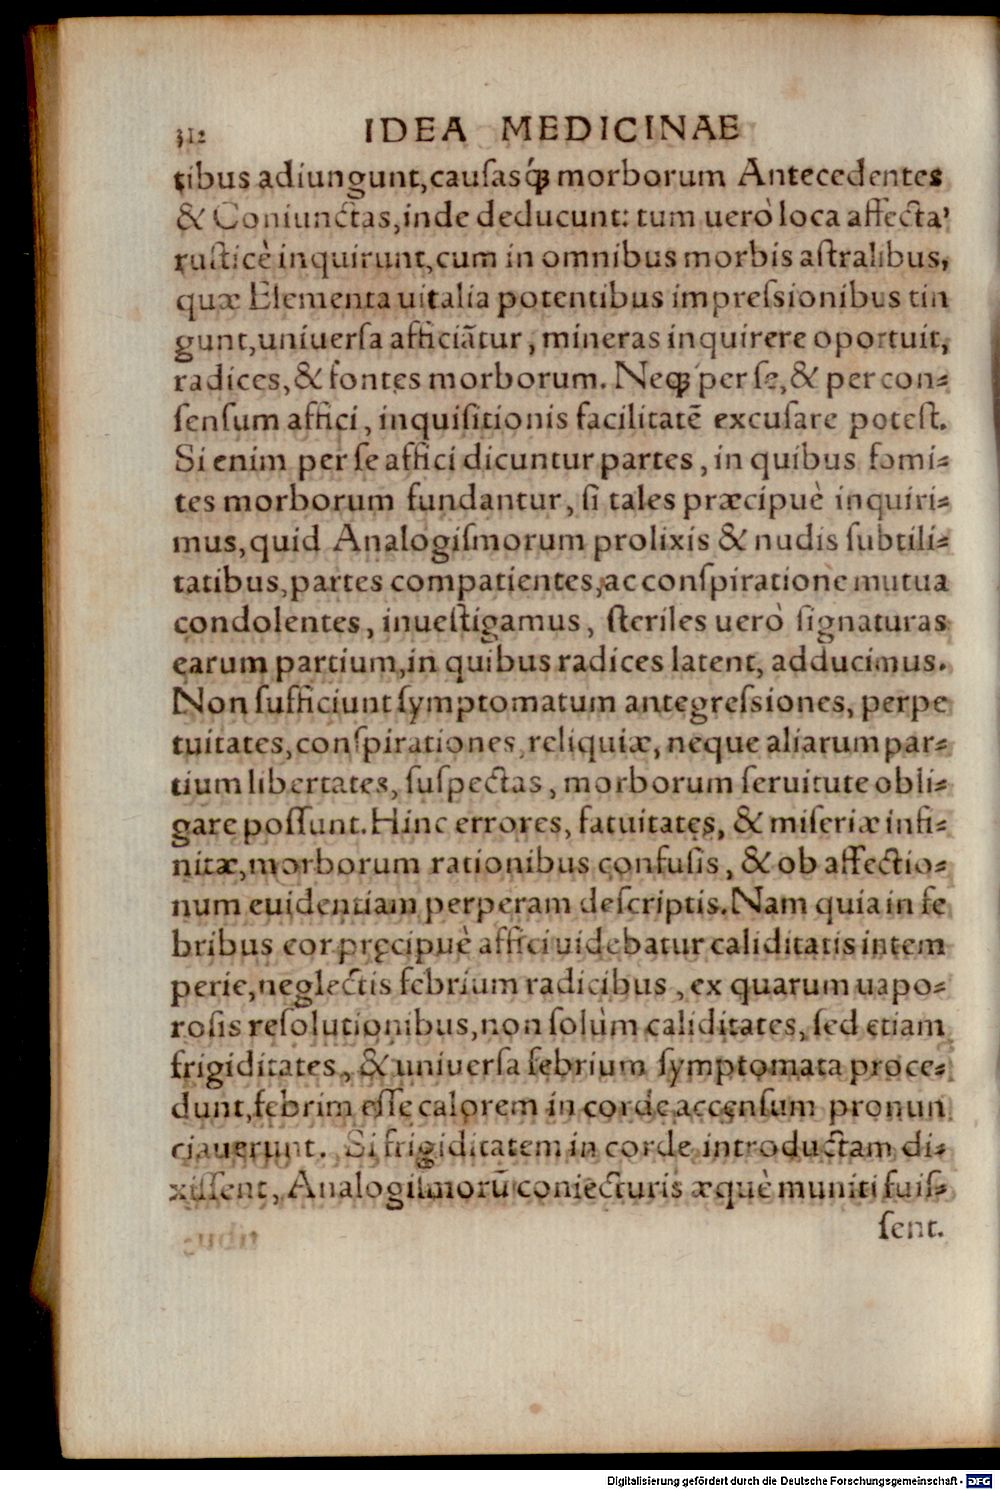 312 IDEA MEDICINAE
tibus adiungunt, cauſasq́; morborum Antecedentes
& Coniunctas, inde deducunt: tum uerò loca affecta
ruſticè inquirunt, cum in omnibus morbis aſtralibus,
quæ Elementa uitalia potentibus impreſsionibus tin
gunt, uniuerſa afficiãtur, mineras inquirere oportuit,
radices, & fontes morborum. Neq; per ſe, & per con-
ſenſum affici, inquiſitionis facilitatẽ excuſare poteſt.
Si enim per ſe affici dicuntur partes, in quibus fomi-
tes morborum fundantur, ſi tales præcipuè inquiri-
mus, quid Analogiſmorum prolixis & nudis ſubtili-
tatibus, partes compatientes, ac conſpiratione mutua
condolentes, inueſtigamus, ſteriles uerò ſignaturas
earum partium, in quibus radices latent, adducimus.
Non ſufficiunt ſymptomatum antegreſsiones, perpe
tuitates, conſpirationes, reliquiæ, neque aliarum par-
tium libertates, ſuſpectas, morborum ſeruitute obli-
gare poſſunt. Hinc errores, fatuitates, & miſeriæ infi-
nitæ, morborum rationibus confuſis, & ob affectio-
num euidentiam perperam deſcriptis. Nam quia in fe
bribus cor pręcipuè affici uidebatur caliditatis intem
perie, neglectis febrium radicibus, ex quarum uapo-
roſis reſolutionibus, non ſolùm caliditates, ſed etiam
frigiditates, & uniuerſa febrium ſymptomata proce-
dunt, febrim eſſe calorem in corde accenſum pronun
ciauerunt. Si frigiditatem in corde introductam di-
xiſſent, Analogiſmorũ coniecturis æquè muniti fuiſ-
ſent.
Digitalisierung gefördert durch die Deutsche Forschungsgemeinschaft - DFG